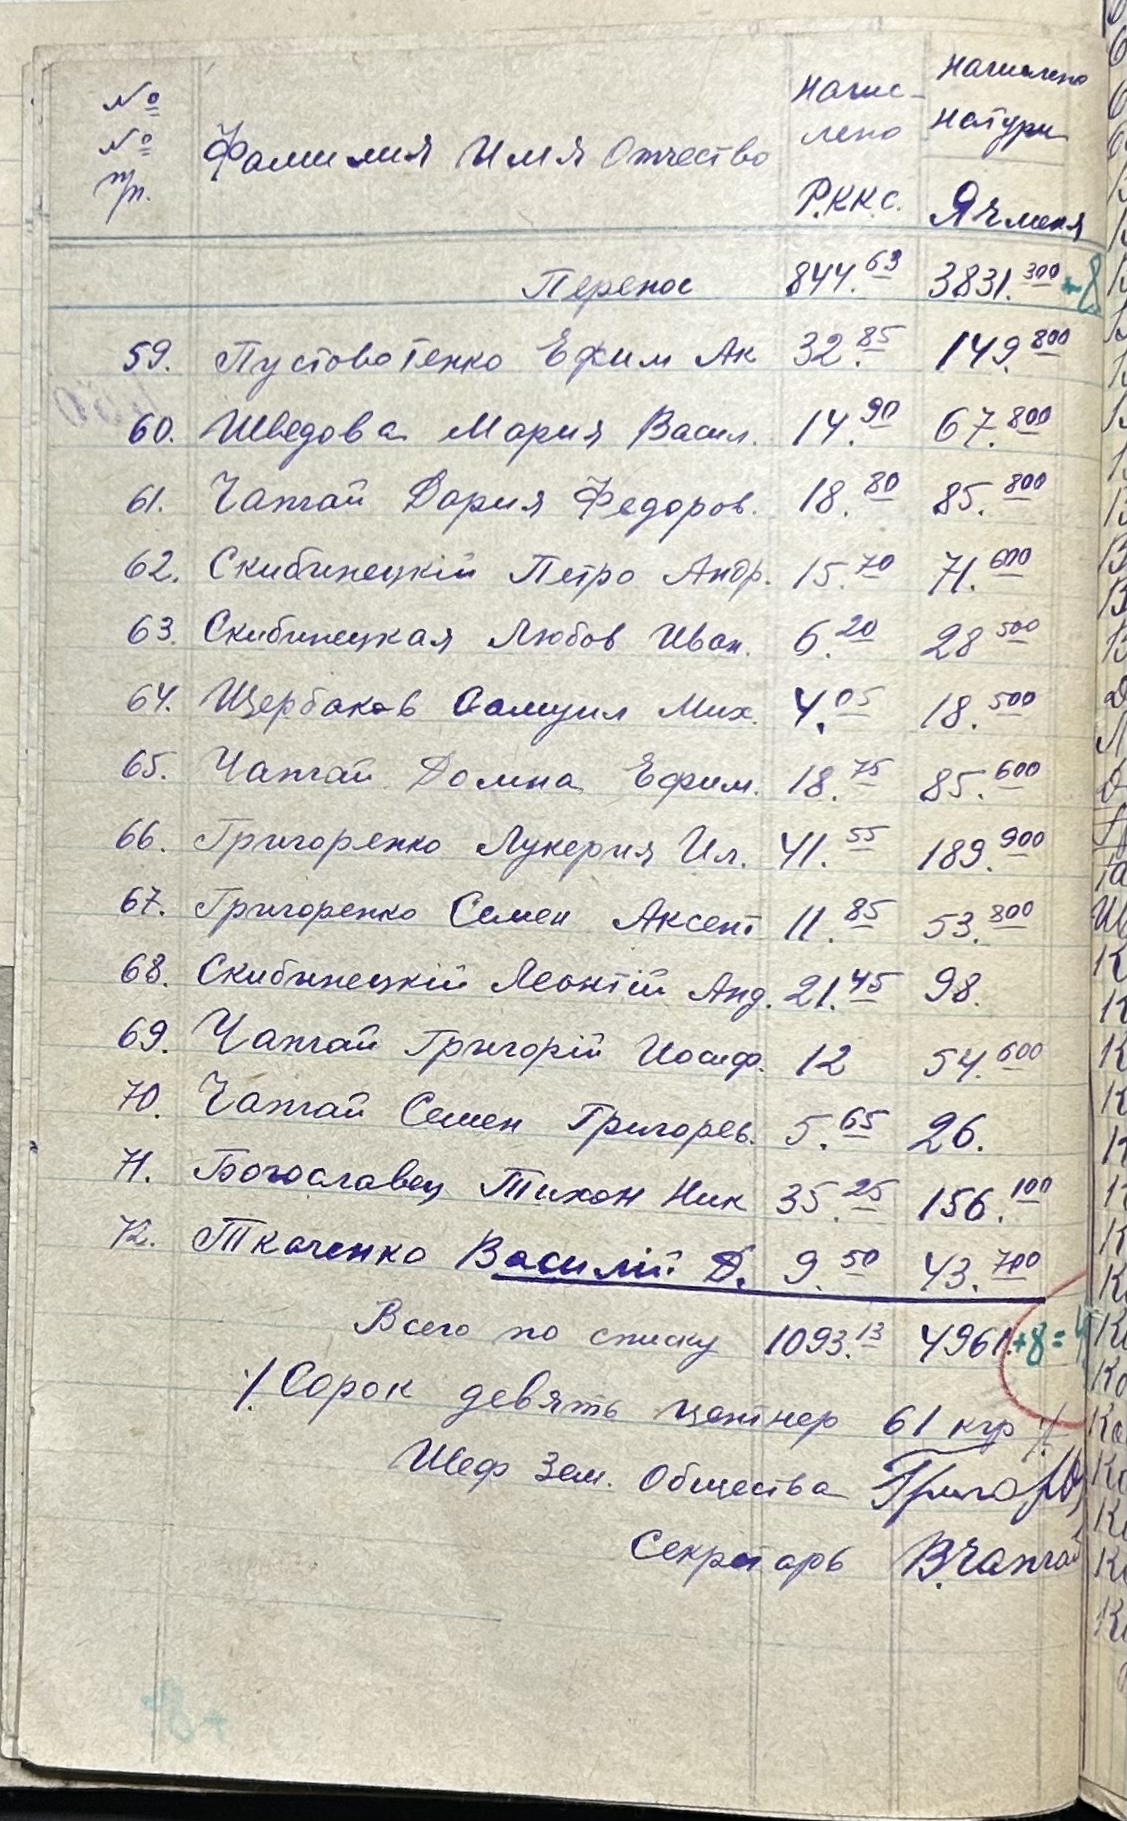 № № п/п. Фамилия Имя Отчество Начислено Р.ККС. Начислено натури Ячменя
Перенос 844.63 3831.300 +8
59. Пустовотенко Ефим Ак 32.85 149.800
60. Шведова Мария Васил. 14.90 67.800
61. Чапгай Дория Федоров. 18.80 85.800
62. Скибинецкій Петро Андр. 15.70 71.600
63. Скибинецкая Любов Иван. 6.20 28 500
64. Щербаков Самуил Мих. 4.05 18.500
65. Чапгай Домна Ефим. 18.75 85.600
66. Григоренко Лукерия Ил. 41.55 189.900
67. Григоренко Семен Аксент 11.85 53.800
68. Скибинецкій Леонтій Анд. 21.45 98.
69. Чапгай Григорій Иосиф. 12 54.600
70. Чапгай Семен Григорев. 5.65 26.
71. Богославец Тихон Ник 35.25 156.100
72. Ткаченко Василій Д. 9.50 43.700
Всего по списку 1093.13 4961. +8=4
/. Сорок девять центнер 61 кгр /.
Шеф Зем. Общества Григор
Секретарь В.Чапгай